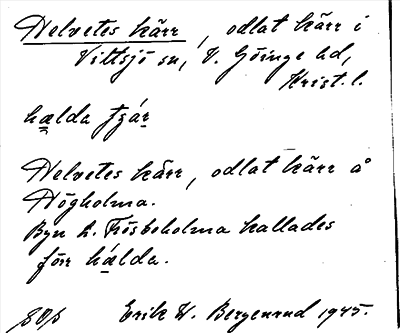 Helvetes kärr, odlat kärr i
Vittsjö sn, V. Göinge hd,
Krist. l.
hælda tʃár
Helvetes kärr, odlat kärr å
Högholma.
Byn L. Frösboholma kallades
förr hǽlda.
Erik W. Bergenrud 1945.